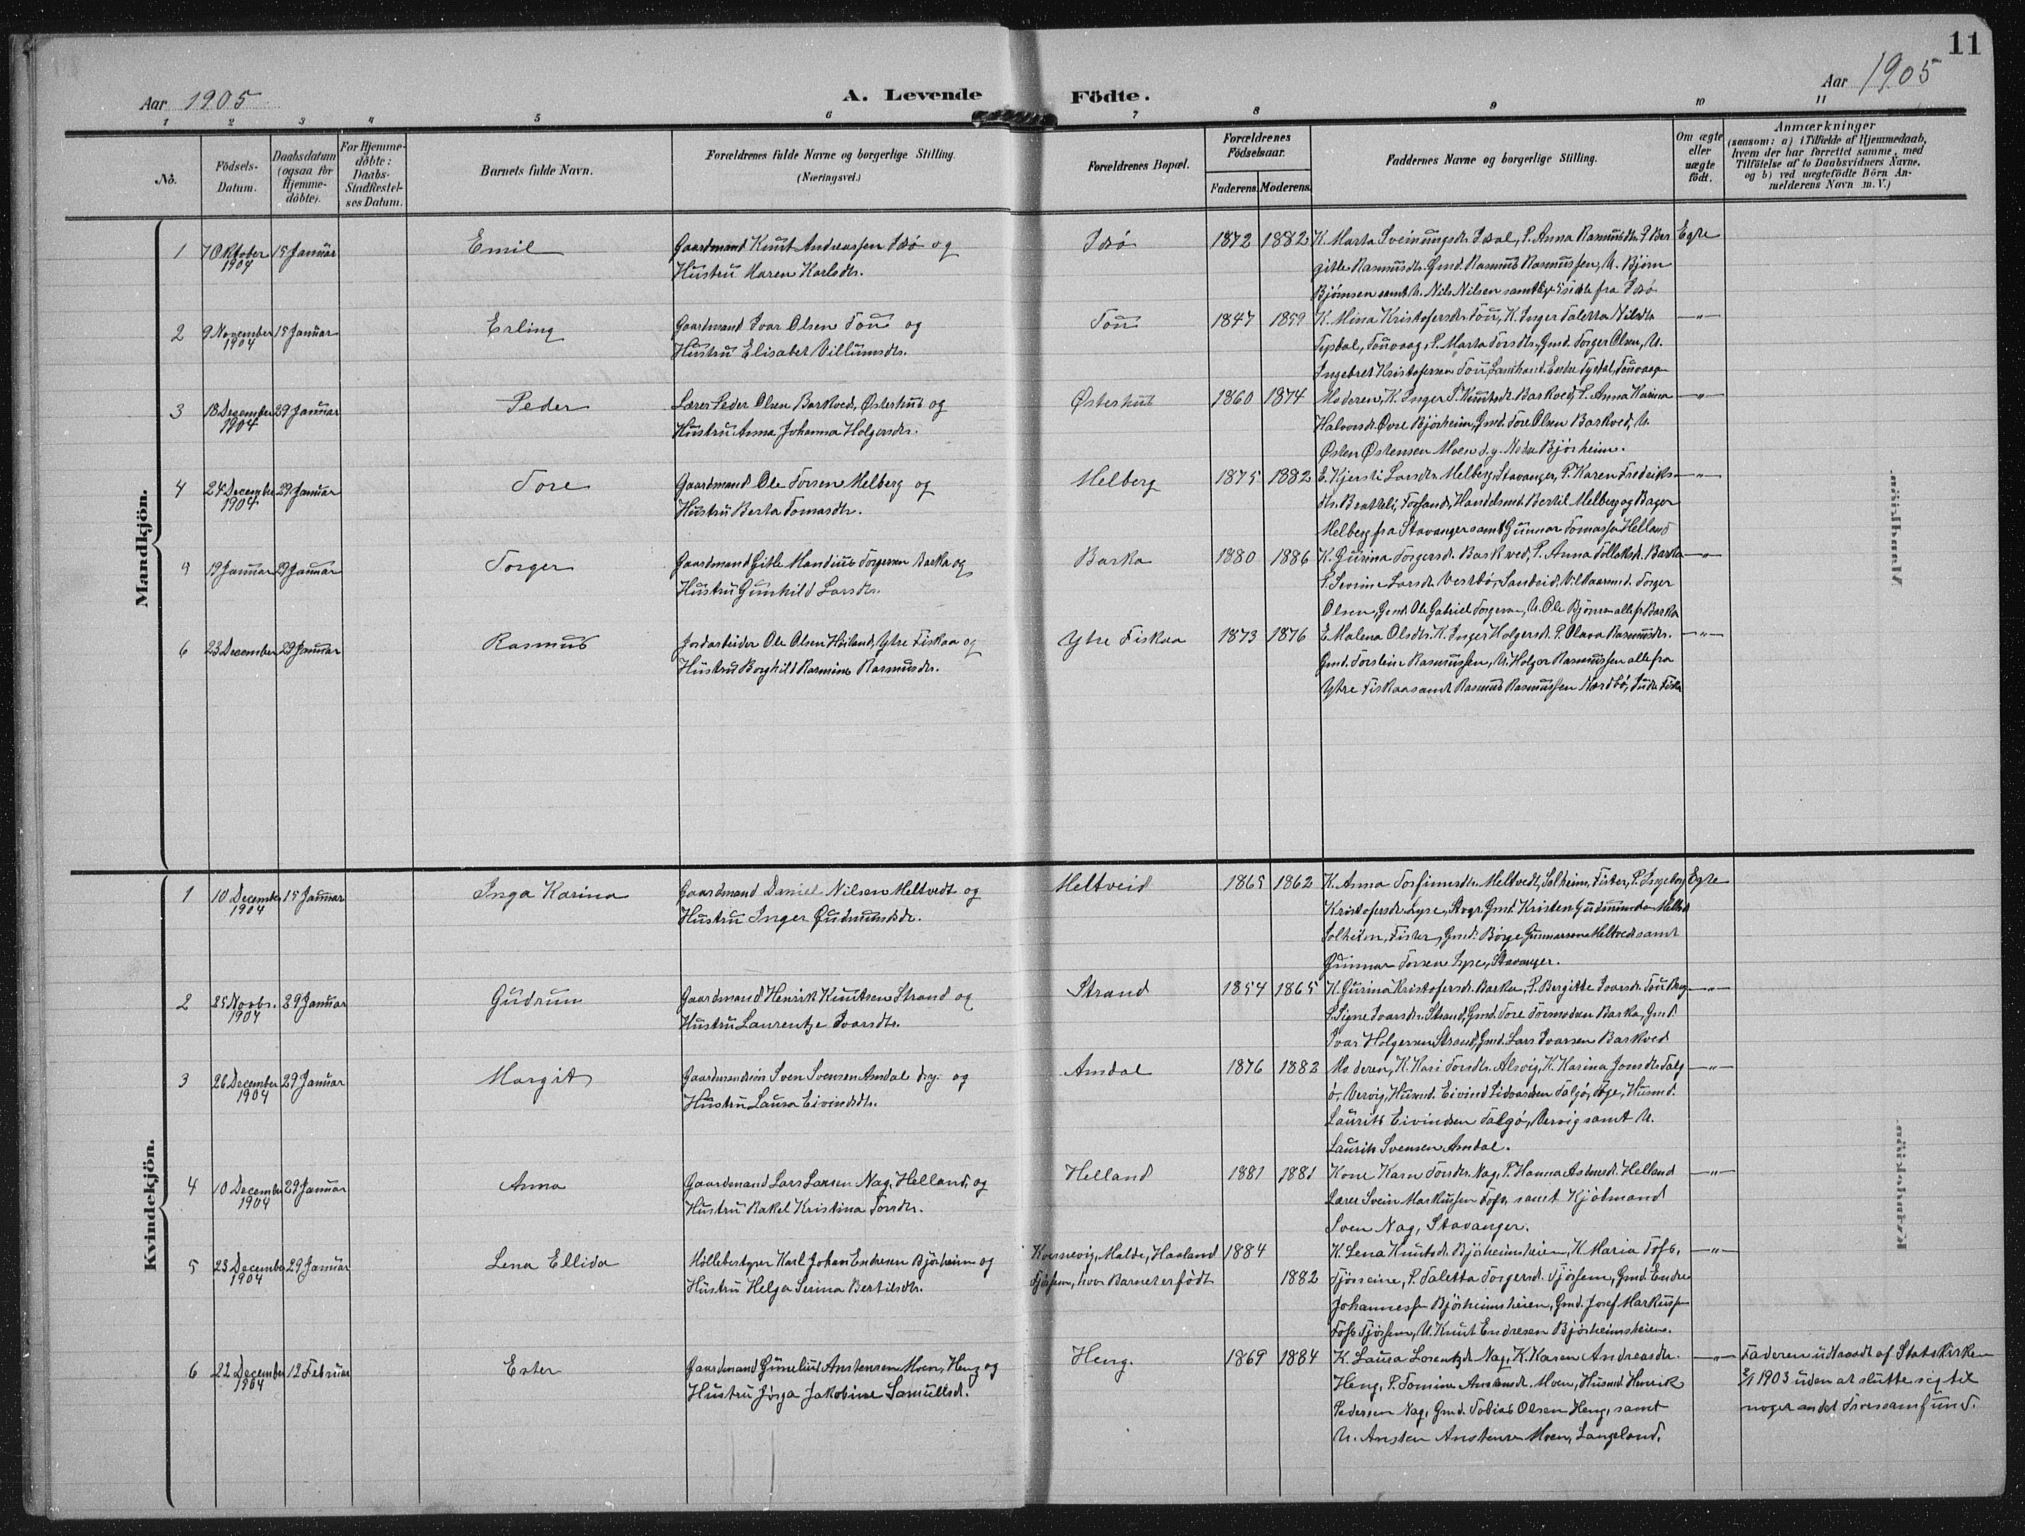 11
Aar 1905
A. Levende Födte.
Aar 1905
1 2 3 4 5 6 7 8 9 10 11
No.
Födsels-
Datum.
Daabsdatum
(ogsaa for
Hjemme-
döbte).
For Hjemme-
döbte:
Daabs-
Stadfæstel-
ses Datum.
Barnets fulde Navn.
Forældrenes fulde Navne og borgerlige Stilling.
(Næringsvei.)
Forældrenes Bopæl.
Forældrenes
Födselsaar.
Faderens. Moderens.
Faddernes Navne og borgerlige Stilling.
Om ægte
eller
uægte
födt.
Anmærkninger
(saasom: a) i Tilfælde af Hjemmedaab,
hvem der har forrettet samme, med
Tilföielse af to Daabsvidners Navne,
og b) ved uægtefödte Börn An-
melderens Navn m. V.)
Mandkjön.
1 7 Oktober 1904 15 Januar Emil
Gaardmand Knut Andreassen Idsö og
Hustru Maren Karlsdtr.
Idsö 1872 1882
K. Marta Sveinungsdr. Idsal, P. Anna Rasmusdtr. P. Ber
githe Rasmusdtr. Gmd. Rasmus Rasmussen, U. Björn
Björnsen samt U. Nils Nilsen samtlige 5 sidste fra Idsö
Egte
2 9 November 1904 15 Januar Erling
Gaardmand Ivar Olsen Tou og
Hustru Elisabet Villumsdtr.
Tou 1847 1859
K. Mina Kristofersdr. Tou, K. Inger Taletta Nilsdtr
Tysdal, Touvaag, P. Marta Torsdtr, Gmd. Torger Olsen, U.
Ingebret Kristofersen Tou, Landhand. Endre Tysdal, Touvaagen
—"—
3 18 December 1904 29 Januar Peder
Lærer Peder Olsen Barkved, Østerhus og
Hustru Anna Johanna Holgersdtr.
Østerhus 1860 1874
Moderen, K. Inger P. Knutsdr. Barkved, P. Anna Karina
Halvorsdr. Övre Björheim, Gmd. Tore Olsen Barkved, U.
Østen Østensen Moen d.y. Nedre Björheim.
—"—
4 24 December 1904 29 Januar Tore
Gaardmand Ole Torsen Melberg og
Hustru Berta Tomasdtr.
Melberg 1875 1882
E. Kjersti Larsdtr. Melberg, Stavanger, P. Karen Frederiks-
dtr. Bratteli, Forsand, Handelsmd. Bertil Melberg og Bager
Melberg fra Stavanger samt Gunnar Tomassen Helland
—"—
5 19 Januar 29 Januar Torger
Gaardmand Gitle Mandius Torgersen Barka og
Hustru Gunhild Larsdtr.
Barka 1880 1886
K. Gurina Torgersdr. Barkved, P. Anna Tollaksdr. Barka
P. Severine Larsdtr. Vestbö, Sandeid, Vilkaarsmd. Torger
Olsen, Gmd. Ole Gabriel Torgersen, U. Ole Björnsen alle fr Barka
—"—
6 23 December 29 Januar Rasmus
Jordarbeider Ole Olsen Heiland, Ytre Fiskaa og
Hustru Borghild Rasmine Rasmusdtr.
Ytre Fiskaa 1873 1876
E. Malena Olsdtr. K. Inger Holgersdr. P. Olava Rasmusdtr.
Gmd. Torsteine Rasmussen, U. Holger Rasmussen alle fra
Ytre Fiskaa samt Rasmus Rasmussen Nordbö, Indr. Fiska
—"—
Kvindekjön.
1 10 December 1904 15 Januar Inga Karina
Gaardmand Daniel Nilsen Meltvedt og
Hustru Inger Gudmundsdr.
Meltveid 1865 1862
K. Anna Torfinnsdtr. Meltvedt, Solheim, Fister, P. Ingeborg
Kristofersdr. Lyse, Stvgr. Gmd. Kristen Gudmundsen Meltved
Solheim, Fister, Gmd. Börge Gunnarsen Meltvedt samt
Gunnar Torsen Lyse, Stavanger.
Egte
2 25 Novbr. 1904 29 Januar Gudrun
Gaardmand Henrik Knutsen Strand og
Hustru Laurentze Ivarsdtr.
Strand 1854 1865
K. Gurina Kristofersdr. Barka, P. Bergitte Ivarsdr. Tou
P. Signe Ivarsdr. Strand, Gmd. Tore Tormodsen Barka, Gmd
Ivar Holgersen Strand, Gmd. Lars Ivarsen Barkved
—"—
3 26 December 1904 29 Januar Margit
Sven Svensen Amdal og
Hustru Laura Eivindsdtr.
Amdal 1876 1882
Moderen, K. Kari Torsdtr. Alsvig, K. Karina Jonsdtr. Talg
ö, Vervig, Husmd. Eivind Sidvardsen Talgö, Husmd.
Laurits Eivindsen Talgö, Vervig samt U.
Laurits Svensen Amdal.
—"—
4 10 December 1904 29 Januar Anna
Gaardmand Lars Larsen Nag, Helland, og
Hustru Rakel Kristina Torsdtr.
Helland 1881 1881
Kone Karn Torsdtr. Nag, P. Hanna Asbmsdr. Helland
Lærer Svein Markussen Fosse, samt Kjöbmand
Sven Nag, Stavanger.
—"—
5 23 December 1904 29 Januar Lena Ellida
Möllebestyrer Karl Johan Endresen Björheim og
Hustru Helga Serina Bertilsdtr.
Kvernevig, Malde, Haaland
Fjörsem, hvor Barnet er födt
1884
1882
K. Lena Knutsdr. Björheimsheien, K. Maria Fofs,
Tjörsem, P. Taletta Torgersdr. Tjörsem, Gmd. Endre
Johannessen Björheimsheien, Gmd. Josef Markussen
Fofs Tjörsem, U. Knut Endresen Björheimsheien.
—"—
6 22 December 1904 12 Februar Ester
Gaardmand Gunelius Anstensen Moen, Heng og
Hustru Jørga Jakobine Samuelsdr.
Heng. 1869 1884
K. Laura Lorentsdr. Nag, K. Karen Andreasdr.
Heng, P. Tomine Anstensdr. Moen, Husmd. Henrik
Pedersen Nag, Gmd. Tobias Olsen Heng, samt
U. Ansten Anstensen Moen, Langeland.
—"—
Faderen udtraadt af Statskirken
1903 uden at slutte sig til
noget andet Trossamfund.